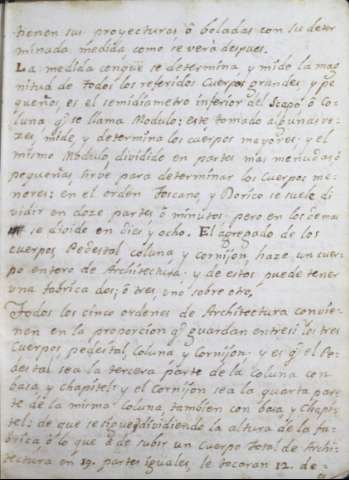 tienen sus proyecturas, ô boladas con su deter
minada medida como se verà despues.
La medida conque se determina, y mide la mag
nitud de todos los referidos Cuerpos grandes, y pe
queños, es el semidiametro inferior del Scapo ô Co-
luna qe se llama Modulo: este tomado algunas ve-
zes, mide, y determina los cuerpos mayores, y el
mismo Modulo, dividido en partes mas menudas, ô
pequeñas, sirve para determinar los Cuerpos me-
nores: en el orden Toscano, y Dorico se suele di
vidir en doze partes ô minutos: pero en los demas
se divide en diez y ocho. El agregado de los
cuerpos, Pedestal, Coluna, y cornijon, haze un cuer
po entero de Architectura: y de estos puede tener
una fabrica dos; ô tres, uno sobre otro.
Todos los cinco ordenes de Architectura convie-
nen en la proporcion qe guardan entresi los tres
Cuerpos, pedestal, Coluna, y Cornijon; y es qe el Pe-
destal sea la tercera parte de la Coluna con
basa, y chapitel: y el Cornijon sea la quarta par-
te de la misma Coluna, tambien con basa y chapi-
tel: de que se sigue, q dividiendo la altura de la fa-
brica ô lo que à de subir un Cuerpo total de Archi-
tectura en 19. partes iguales, le tocaran 12. de-